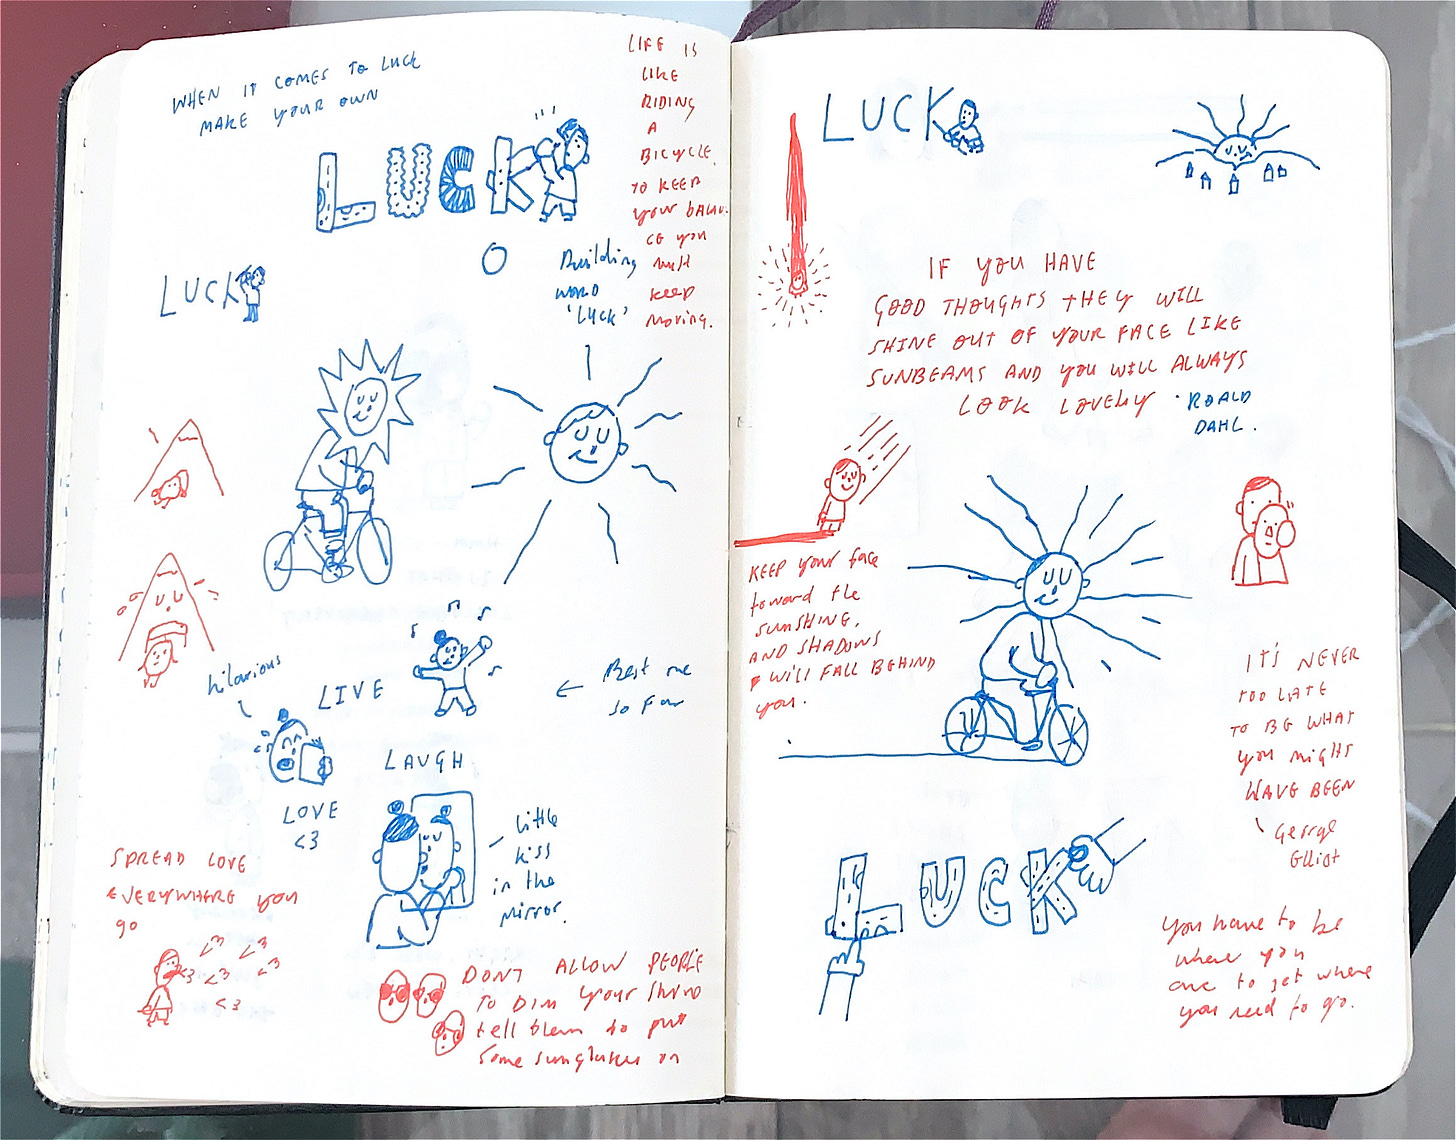 WHEN IT COMES TO LUCK
MAKE YOUR OWN
LUCK
LUCK
Building
WORD
'LUCK'
LIFE IS
LIKE
RIDING
A
BICYCLE.
TO KEEP
your balan
ce you
must
keep
moving.
hilarious
LIVE
Best me
so far
LAUGH
LOVE
<3
little
kiss
in the
mirror.
SPREAD LOVE
EVERYWHERE you
go
<3 <3
<3 <3 <3
<3
DON'T ALLOW PEOPLE
TO DIM your shine
tell them to put
some sunglasses on
LUCK
IF YOU HAVE
GOOD THOUGHTS THEY WILL
SHINE OUT OF YOUR FACE LIKE
SUNBEAMS AND YOU WILL ALWAYS
LOOK LOVELY · ROALD
DAHL.
KEEP your face
toward the
SUNSHINE,
AND SHADOWS
WILL FALL BEHIND
you.
IT'S NEVER
TOO LATE
TO BE WHAT
you might
HAVE BEEN
George
Elliot
LUCK
you have to be
where you
are to get where
you need to go.